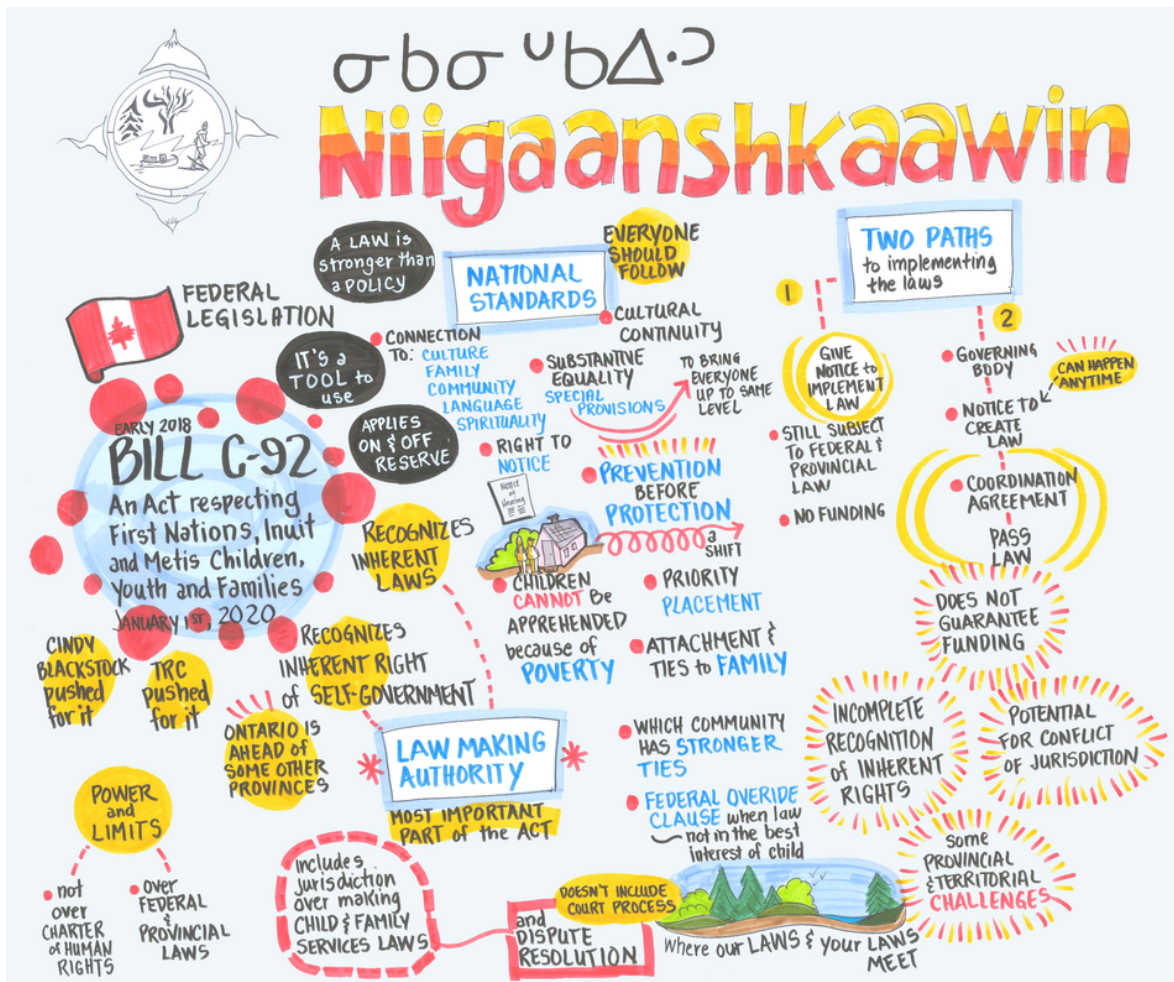 ᓂᑲᓂᐡᑲᐃᐧᐣ
Niigaanshkaawin
FEDERAL
LEGISLATION
A LAW is
stronger than
a POLICY
IT'S a
TOOL to
use
APPLIES
ON & OFF
RESERVE
EARLY 2018
BILL C-92
An Act respecting
First Nations, Inuit
and Metis Children,
Youth and Families
JANUARY 1ST, 2020
CINDY
BLACKSTOCK
pushed
for it
TRC
pushed
for it
RECOGNIZES
INHERENT
LAWS
RECOGNIZES
INHERENT RIGHT
of SELF-GOVERNMENT
ONTARIO IS
AHEAD of
SOME OTHER
PROVINCES
NATIONAL
STANDARDS
EVERYONE
SHOULD
FOLLOW
CONNECTION
TO: CULTURE
FAMILY
COMMUNITY
LANGUAGE
SPIRITUALITY
CULTURAL
CONTINUITY
SUBSTANTIVE
EQUALITY
SPECIAL
PROVISIONS
TO BRING
EVERYONE
UP TO SAME
LEVEL
RIGHT TO
NOTICE
Notice
of
Hearing
PREVENTION
BEFORE
PROTECTION
a
SHIFT
CHILDREN
CANNOT Be
APPREHENDED
because of
POVERTY
PRIORITY
PLACEMENT
ATTACHMENT &
TIES to FAMILY
WHICH COMMUNITY
HAS STRONGER
TIES
FEDERAL OVERIDE
CLAUSE when law
not in the best
interest of child
LAW MAKING
AUTHORITY
MOST IMPORTANT
PART of the ACT
POWER
and
LIMITS
not
over
CHARTER
of HUMAN
RIGHTS
over
FEDERAL
&
PROVINCIAL
LAWS
includes
jurisdiction
over making
CHILD & FAMILY
SERVICES LAWS
and
DISPUTE
RESOLUTION
DOESN'T INCLUDE
COURT PROCESS
where our LAWS & your LAWS
MEET
TWO PATHS
to implementing
the laws
1
GIVE
NOTICE to
IMPLEMENT
LAW
STILL SUBJECT
TO FEDERAL &
PROVINCIAL
LAW
NO FUNDING
2
GOVERNING
BODY
CAN HAPPEN
ANYTIME
NOTICE TO
CREATE
LAW
COORDINATION
AGREEMENT
PASS
LAW
DOES NOT
GUARANTEE
FUNDING
INCOMPLETE
RECOGNITION
of INHERENT
RIGHTS
POTENTIAL
FOR CONFLICT
OF JURISDICTION
Some
PROVINCIAL
& TERRITORIAL
CHALLENGES